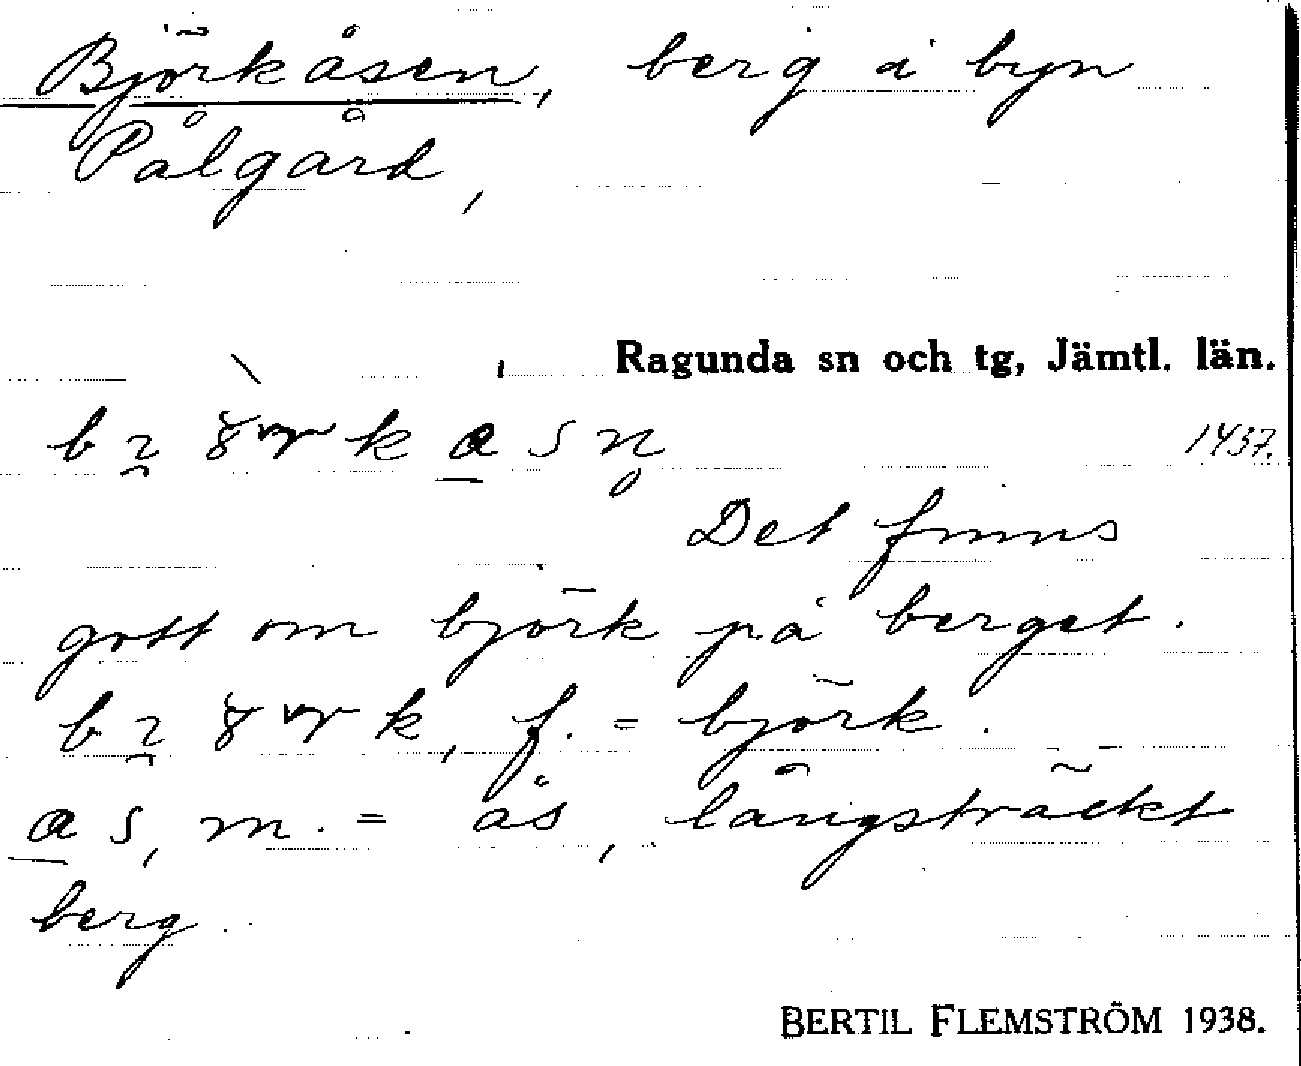 Björkåsen, berg i byn
Pålgård,
Ragunda sn och tg, Jämtl. län.
1437.
Det finns
gott om björk på berget.
k, f. = björk.
s, m. = ås, långsträckt
berg.
BERTIL FLEMSTRÖM 1938.